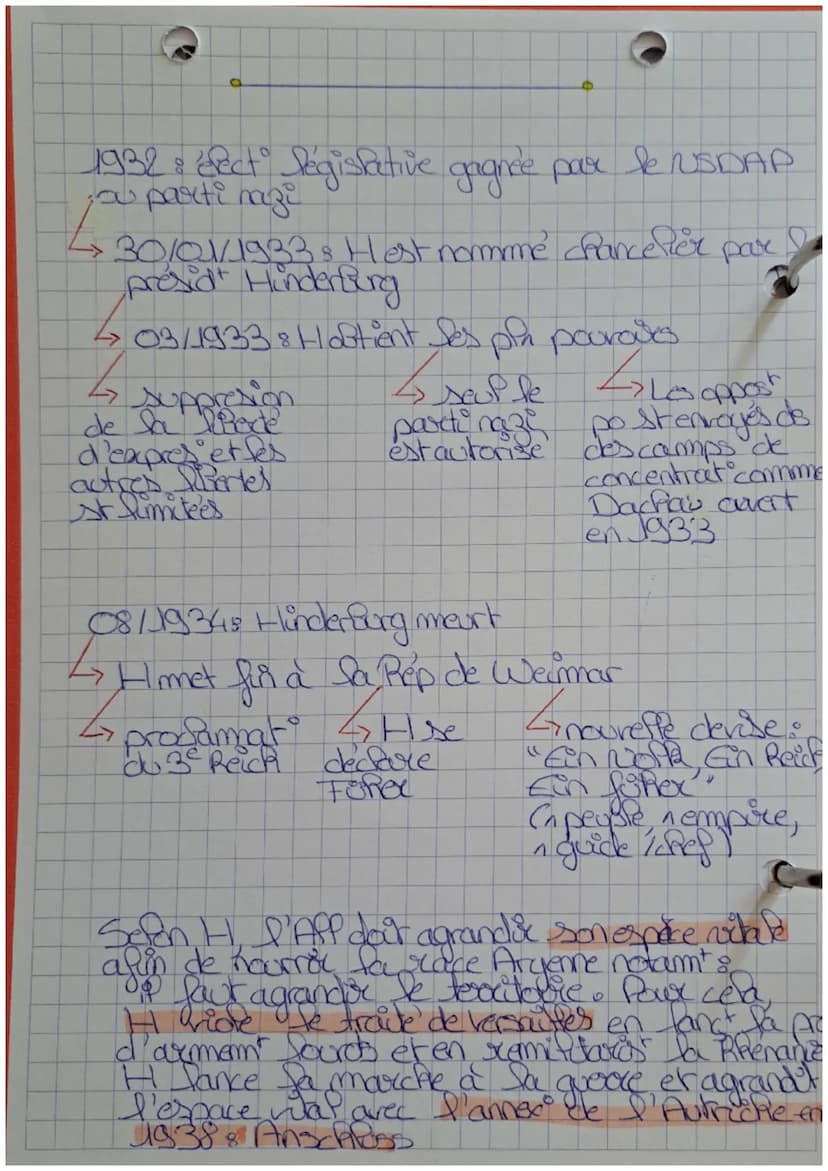 1932 : élect° législative gagnée par le NSDAP
ou parti nazi
↳ 30/01/1933 : H est nommmé chancelier par l
présidt Hinderburg
↳ 03/1933 : H obtient les pln pouvoirs
↳ suppresion
de la liberté
d'expres° et les
autres libertés
st limitées
↳ seul le
parti nazi
est autorisé
↳ Les oppost
po st envoyés ds
des camps de
concentrat° comme
Dachau ouvert
en 1933
08/1934 : Hinderburg meurt
↳ H met fin à la Rép de Weimar
↳ proclamat°
du 3e Reich
↳ H se
déclare
Führer
↳ nouvelle devise :
"Ein Volk, Ein Reich
Ein führer"
(1 peuple, 1 empire,
1 guide /chef)
Selon H, l'All doit agrandir son espace vitale
afin de nourrir la race Aryenne notamt :
il faut agrandir le territoire. Pour cela,
H viole le traité de versailles en lançt la pro
d'armemt lourds et en remilitarist la Rhénanie
H lance la marche à la guerre et agrandit
l'espace vital avec l'annex° de l'Autriche en
1938 : Anschluss